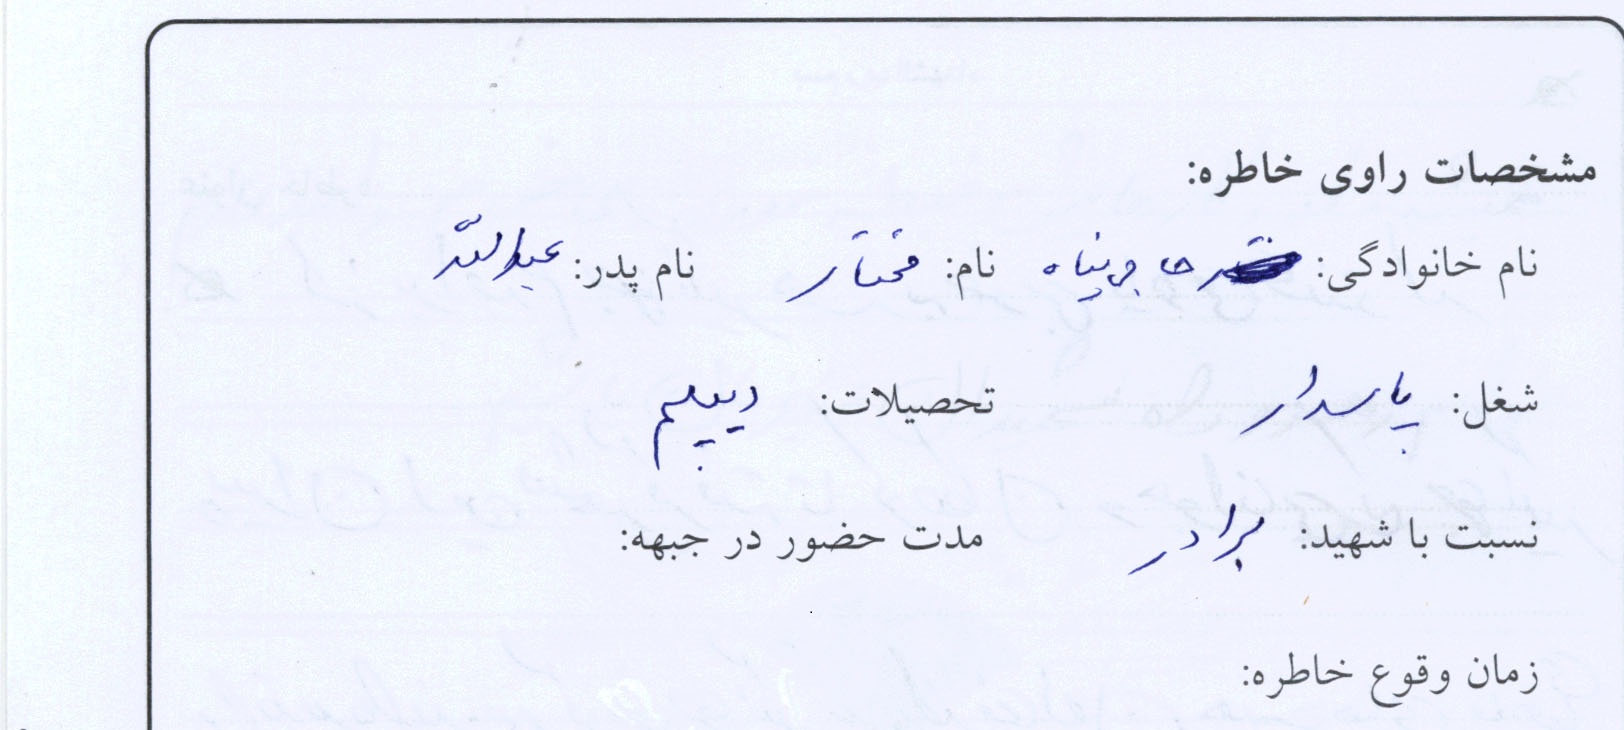 مشخصات راوی خاطره:
نام خانوادگی: نام: مختار نام پدر: عبدالله
شغل: پاسدار تحصیلات: دیپلم
نسبت با شهید: برادر مدت حضور در جبهه:
زمان وقوع خاطره: